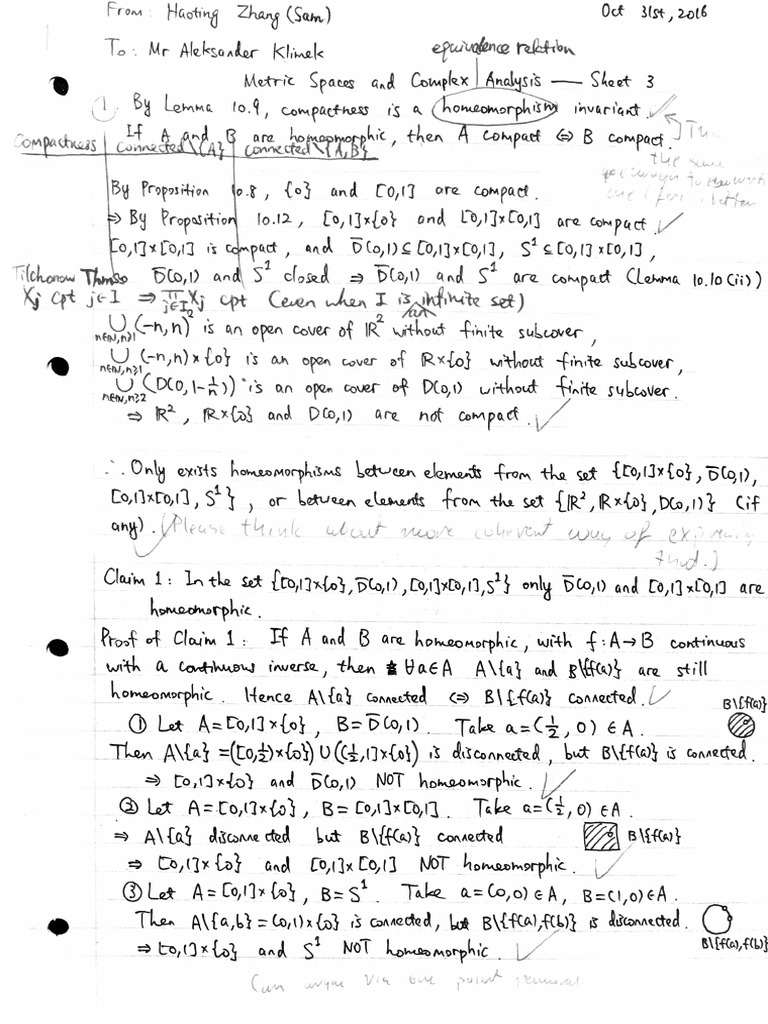 From: Haoting Zhang (Sam) Oct 31st, 2016
To: Mr Aleksander Klimek
equivalence relation
Metric Spaces and Complex Analysis — Sheet 3
1. By Lemma 10.9, compactness is a homeomorphism invariant.
If A and B are homeomorphic, then A compact ⇔ B compact.
Compactness connected\{A} connected\{A,B}
the same
By Proposition 10.8, {0} and [0,1] are compact.
⇒ By Proposition 10.12, [0,1]×{0} and [0,1]×[0,1] are compact.
[0,1]×[0,1] is compact, and D̄(0,1)⊆[0,1]×[0,1], S¹⊆[0,1]×[0,1],
D̄(0,1) and S¹ closed ⇒ D̄(0,1) and S¹ are compact (Lemma 10.10(ii))
Xj cpt j∈I ⇒ ∏ j∈I Xj cpt (even when I is an infinite set)
⋃ n∈ℕ,n≥1 (-n,n)² is an open cover of ℝ² without finite subcover,
⋃ n∈ℕ,n≥1 (-n,n)×{0} is an open cover of ℝ×{0} without finite subcover,
⋃ n∈ℕ,n≥2 (D(0,1-1/n)) is an open cover of D(0,1) without finite subcover.
⇒ ℝ², ℝ×{0} and D(0,1) are not compact.
∴ Only exists homeomorphisms between elements from the set {[0,1]×{0}, D̄(0,1),
[0,1]×[0,1], S¹}, or between elements from the set {ℝ², ℝ×{0}, D(0,1)} (if
any). (Please think about more coherent way of
Claim 1: In the set {[0,1]×{0}, D̄(0,1), [0,1]×[0,1], S¹} only D̄(0,1) and [0,1]×[0,1] are
homeomorphic.
Proof of Claim 1: If A and B are homeomorphic, with f:A→B continuous
with a continuous inverse, then ∀a∈A A\{a} and B\{f(a)} are still
homeomorphic. Hence A\{a} connected ⇔ B\{f(a)} connected.
B\{f(a)}
① Let A=[0,1]×{0}, B=D̄(0,1). Take a=(½,0)∈A.
Then A\{a}=([0,½)×{0})∪((½,1]×{0}) is disconnected, but B\{f(a)} is connected.
⇒ [0,1]×{0} and D̄(0,1) NOT homeomorphic.
② Let A=[0,1]×{0}, B=[0,1]×[0,1]. Take a=(½,0)∈A.
⇒ A\{a} disconnected but B\{f(a)} connected B\{f(a)}
⇒ [0,1]×{0} and [0,1]×[0,1] NOT homeomorphic.
③ Let A=[0,1]×{0}, B=S¹. Take a=(0,0)∈A, B=(1,0)∈A.
Then A\{a,b}=(0,1)×{0} is connected, but B\{f(a),f(b)} is disconnected.
⇒ [0,1]×{0} and S¹ NOT homeomorphic. B\{f(a),f(b)}
Can argue via one point removal